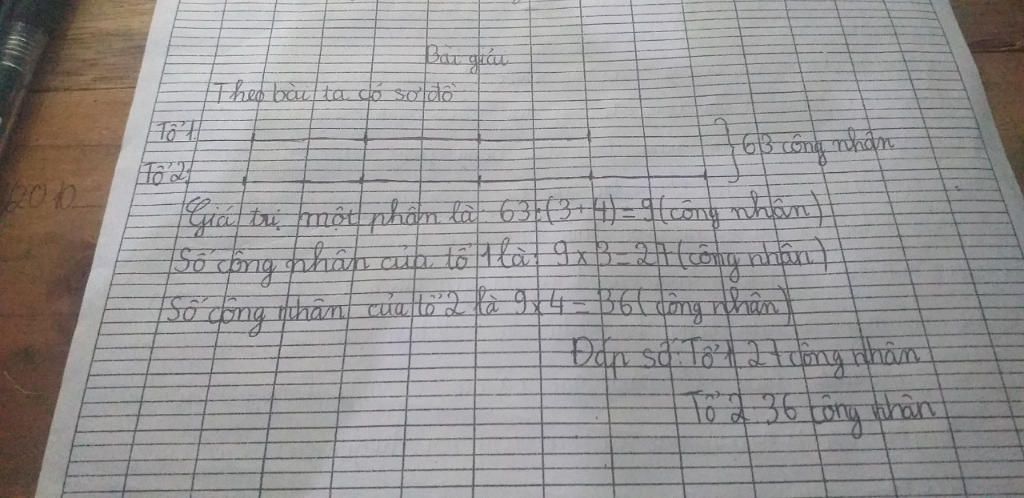 Bài giải
Theo bài ta có sơ đồ
Tổ 1: } 63 công nhân
Tổ 2:
Giá trị một phần là 63:(3+4)=9(công nhân)
Số công nhân của tổ 1 là: 9x3=27(công nhân)
Số công nhân của tổ 2 là 9x4=36(công nhân)
Đáp số: Tổ 1 27 công nhân
Tổ 2 36 công nhân